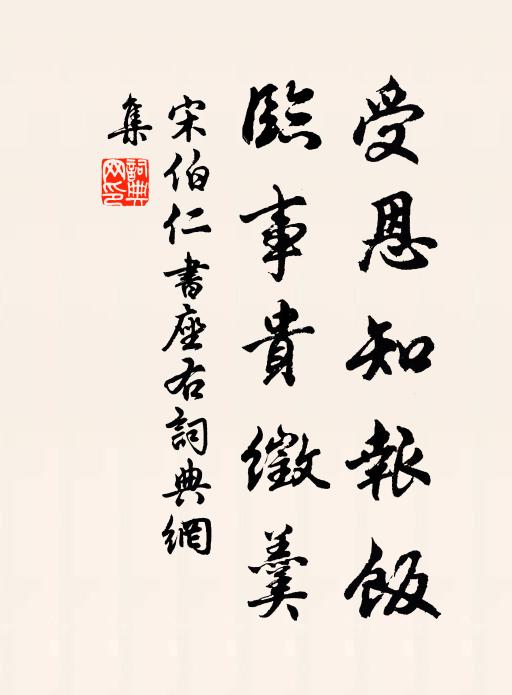 受恩知報飯
臨事貴徵羹
宋伯仁書座右詞典網
集
詞典網印